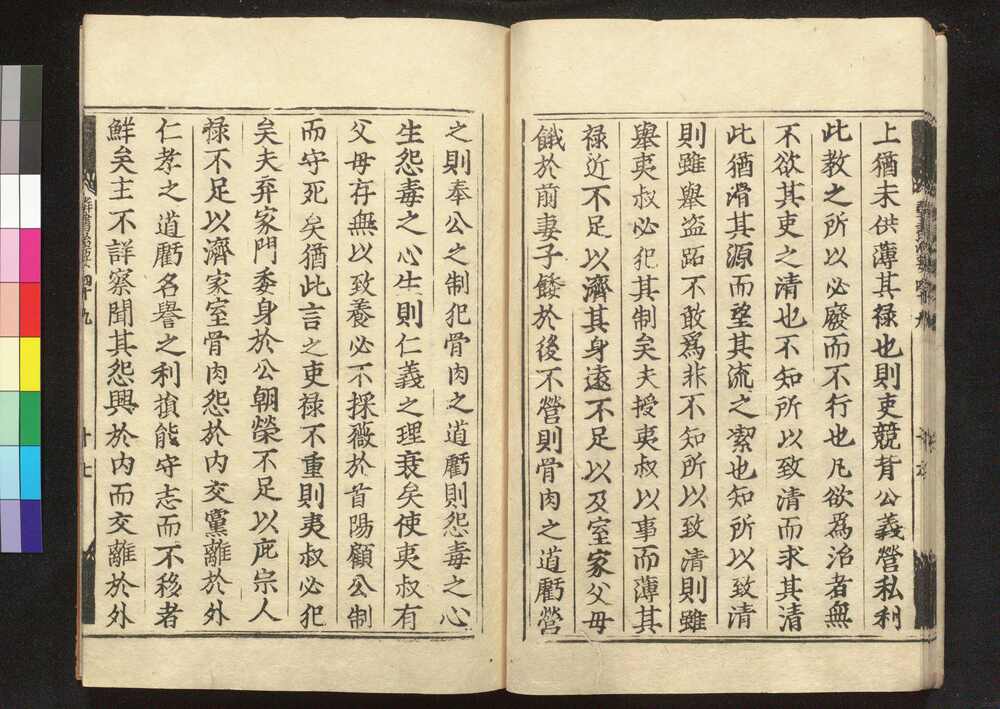 上猶未供薄其禄也則吏競背公義營私利
此教之所以必廢而不行也凡欲爲治者無
不欲其吏之清也不知所以致清而求其清
此猶滑其源而望其流之潔也知所以致清
則雖舉盗跖不敢爲非不知所以致清則雖
舉夷叔必犯其制矣夫授夷叔以事而薄其
禄近不足以濟其身遠不足以及室家父母
餓於前妻子餧於後不營則骨肉之道虧營
之則奉公之制犯骨肉之道虧則怨毒之心
生怨毒之心生則仁義之理衰矣使夷叔有
父母存無以致養必不採薇於首陽顧公制
而守死矣猶此言之吏禄不重則夷叔必犯
矣夫弃家門委身於公朝榮不足以庇宗人
禄不足以濟家室骨肉怨於内交黨離於外
仁孝之道虧名譽之利損能守志而不移者
鮮矣主不詳察聞其怨興於内而交離於外
群書治要 四十九
十七